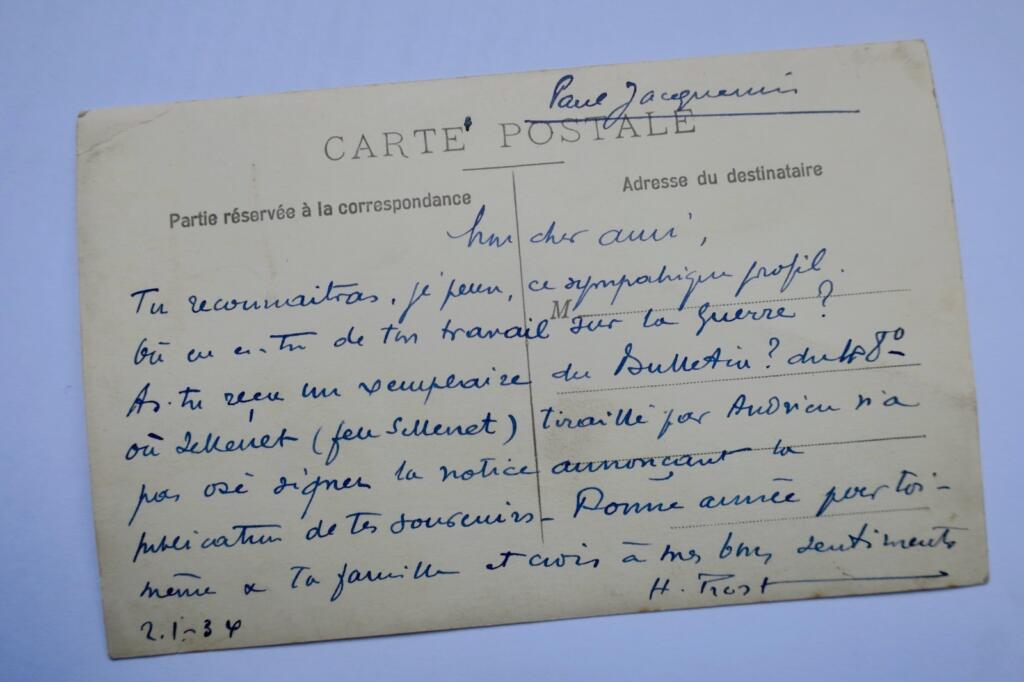 Paul Jacquemin
CARTE POSTALE
Partie réservée à la correspondance
Adresse du destinataire
Mon cher ami,
M
Tu reconnaitras, je pense, ce sympathique profil.
Où en es-tu de ton travail sur la guerre ?
As-tu reçu un exemplaire du Bulletin ? du 8º
où Sellenet (feu Sellenet) tiraillé par Andrieu n'a
pas osé signer la notice annonçant la
publication de tes souvenirs - Bonne année pour toi-
même & ta famille et crois à mes bons sentiments
H. Prost
2.1-34